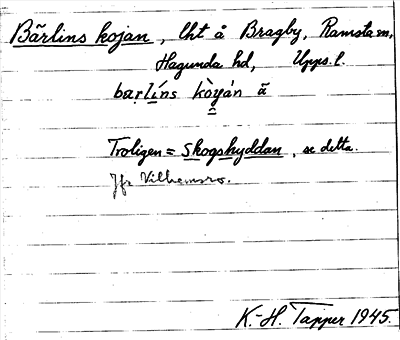 Bärlins kojan, lht å Bragby, Ramsta sn,
Hagunda hd, Upps. l.
barlíns kòyán ã
Troligen = Skogshyddan, se detta.
Jfr Vilhemsro.
K.-H. Tapper 1945.